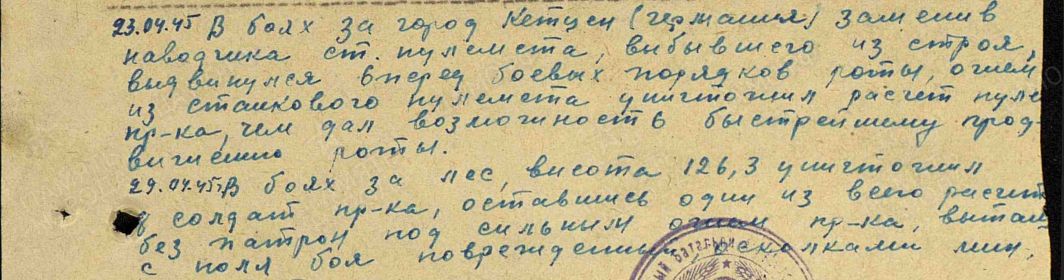 23.04.45 В боях за город Кетцен (германия) заменив
наводчика ст. пулемета, выбывшего из строя,
выдвинулся вперед боевых порядков роты, огнем
из станкового пулемета уничтожил расчет пуле
пр-ка, чем дал возможность быстрейшему прод-
вижению роты.
29.04.45г. В боях за лес, высота 126,3 уничтожил
8 солдат пр-ка, оставшись один из всего расчета
без патрон под сильным огнем пр-ка, вытащил
с поля боя поврежденный осколками мин,